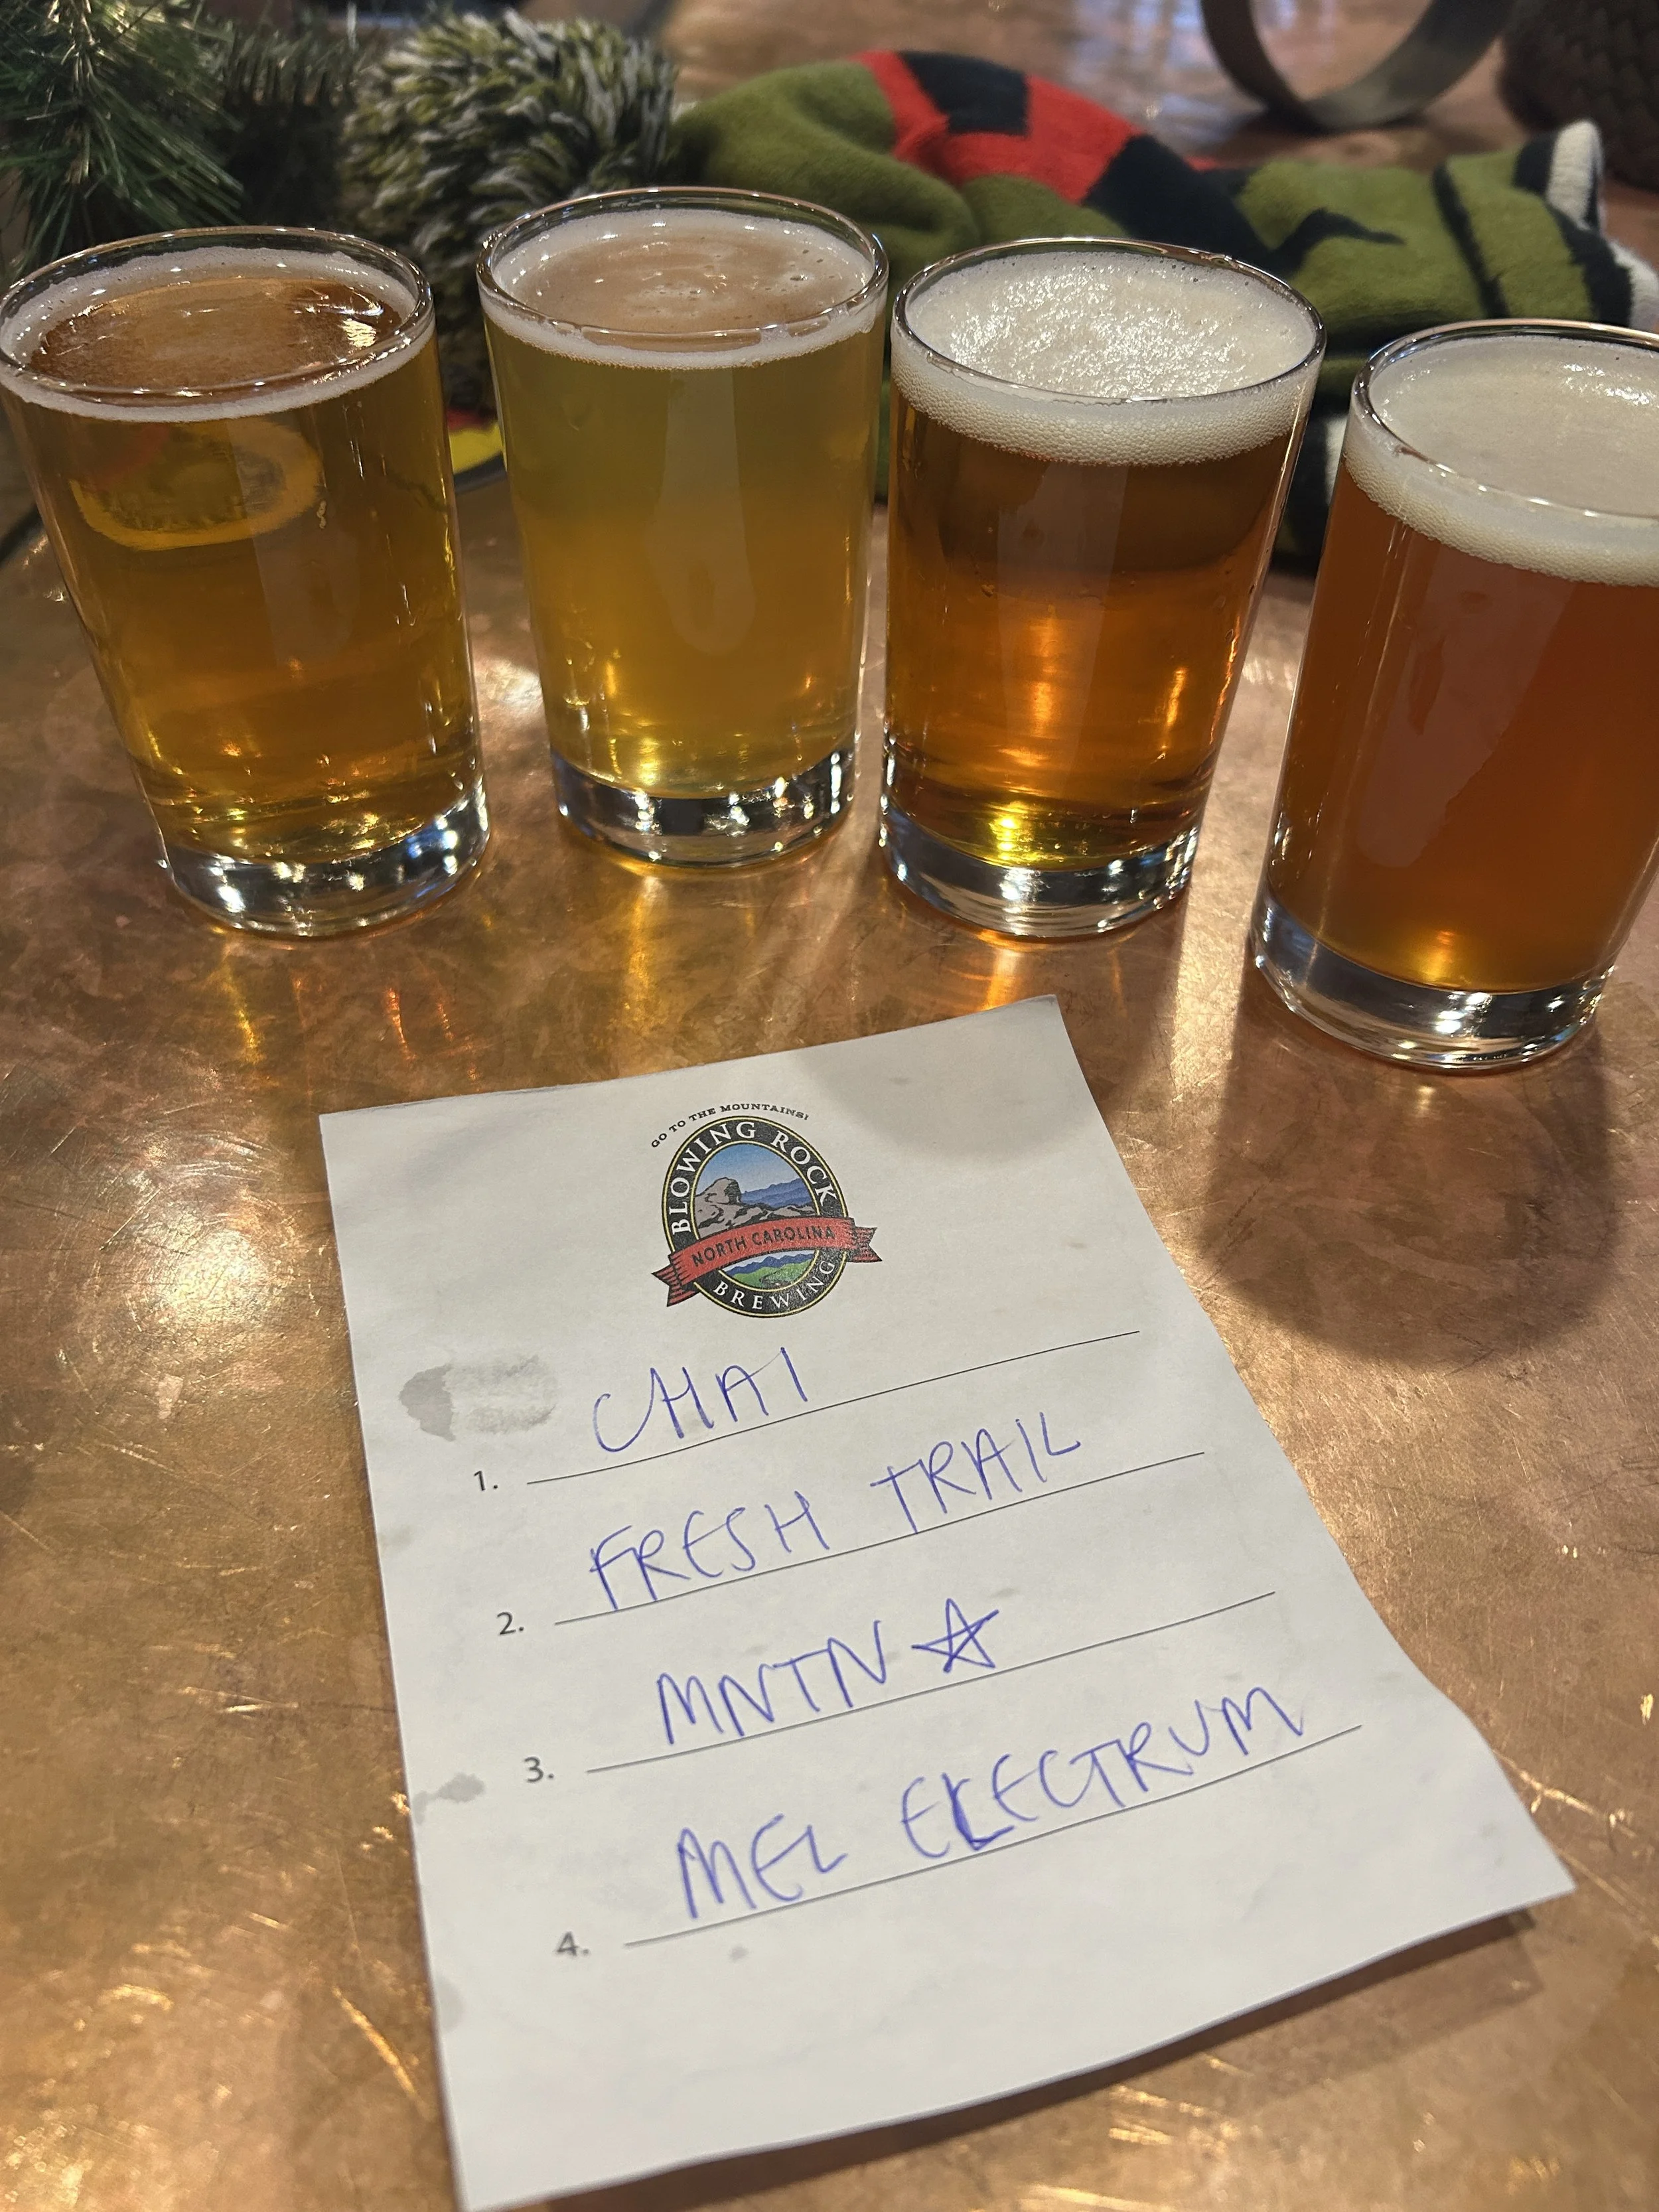 GO TO THE MOUNTAINS!
BLOWING ROCK
NORTH CAROLINA
BREWING
1. CHAI
2. FRESH TRAIL
3. MNTN ☆
4. MEL ELECTRUM